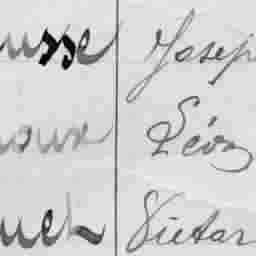 usse Josep
oux Léon
uch Victor